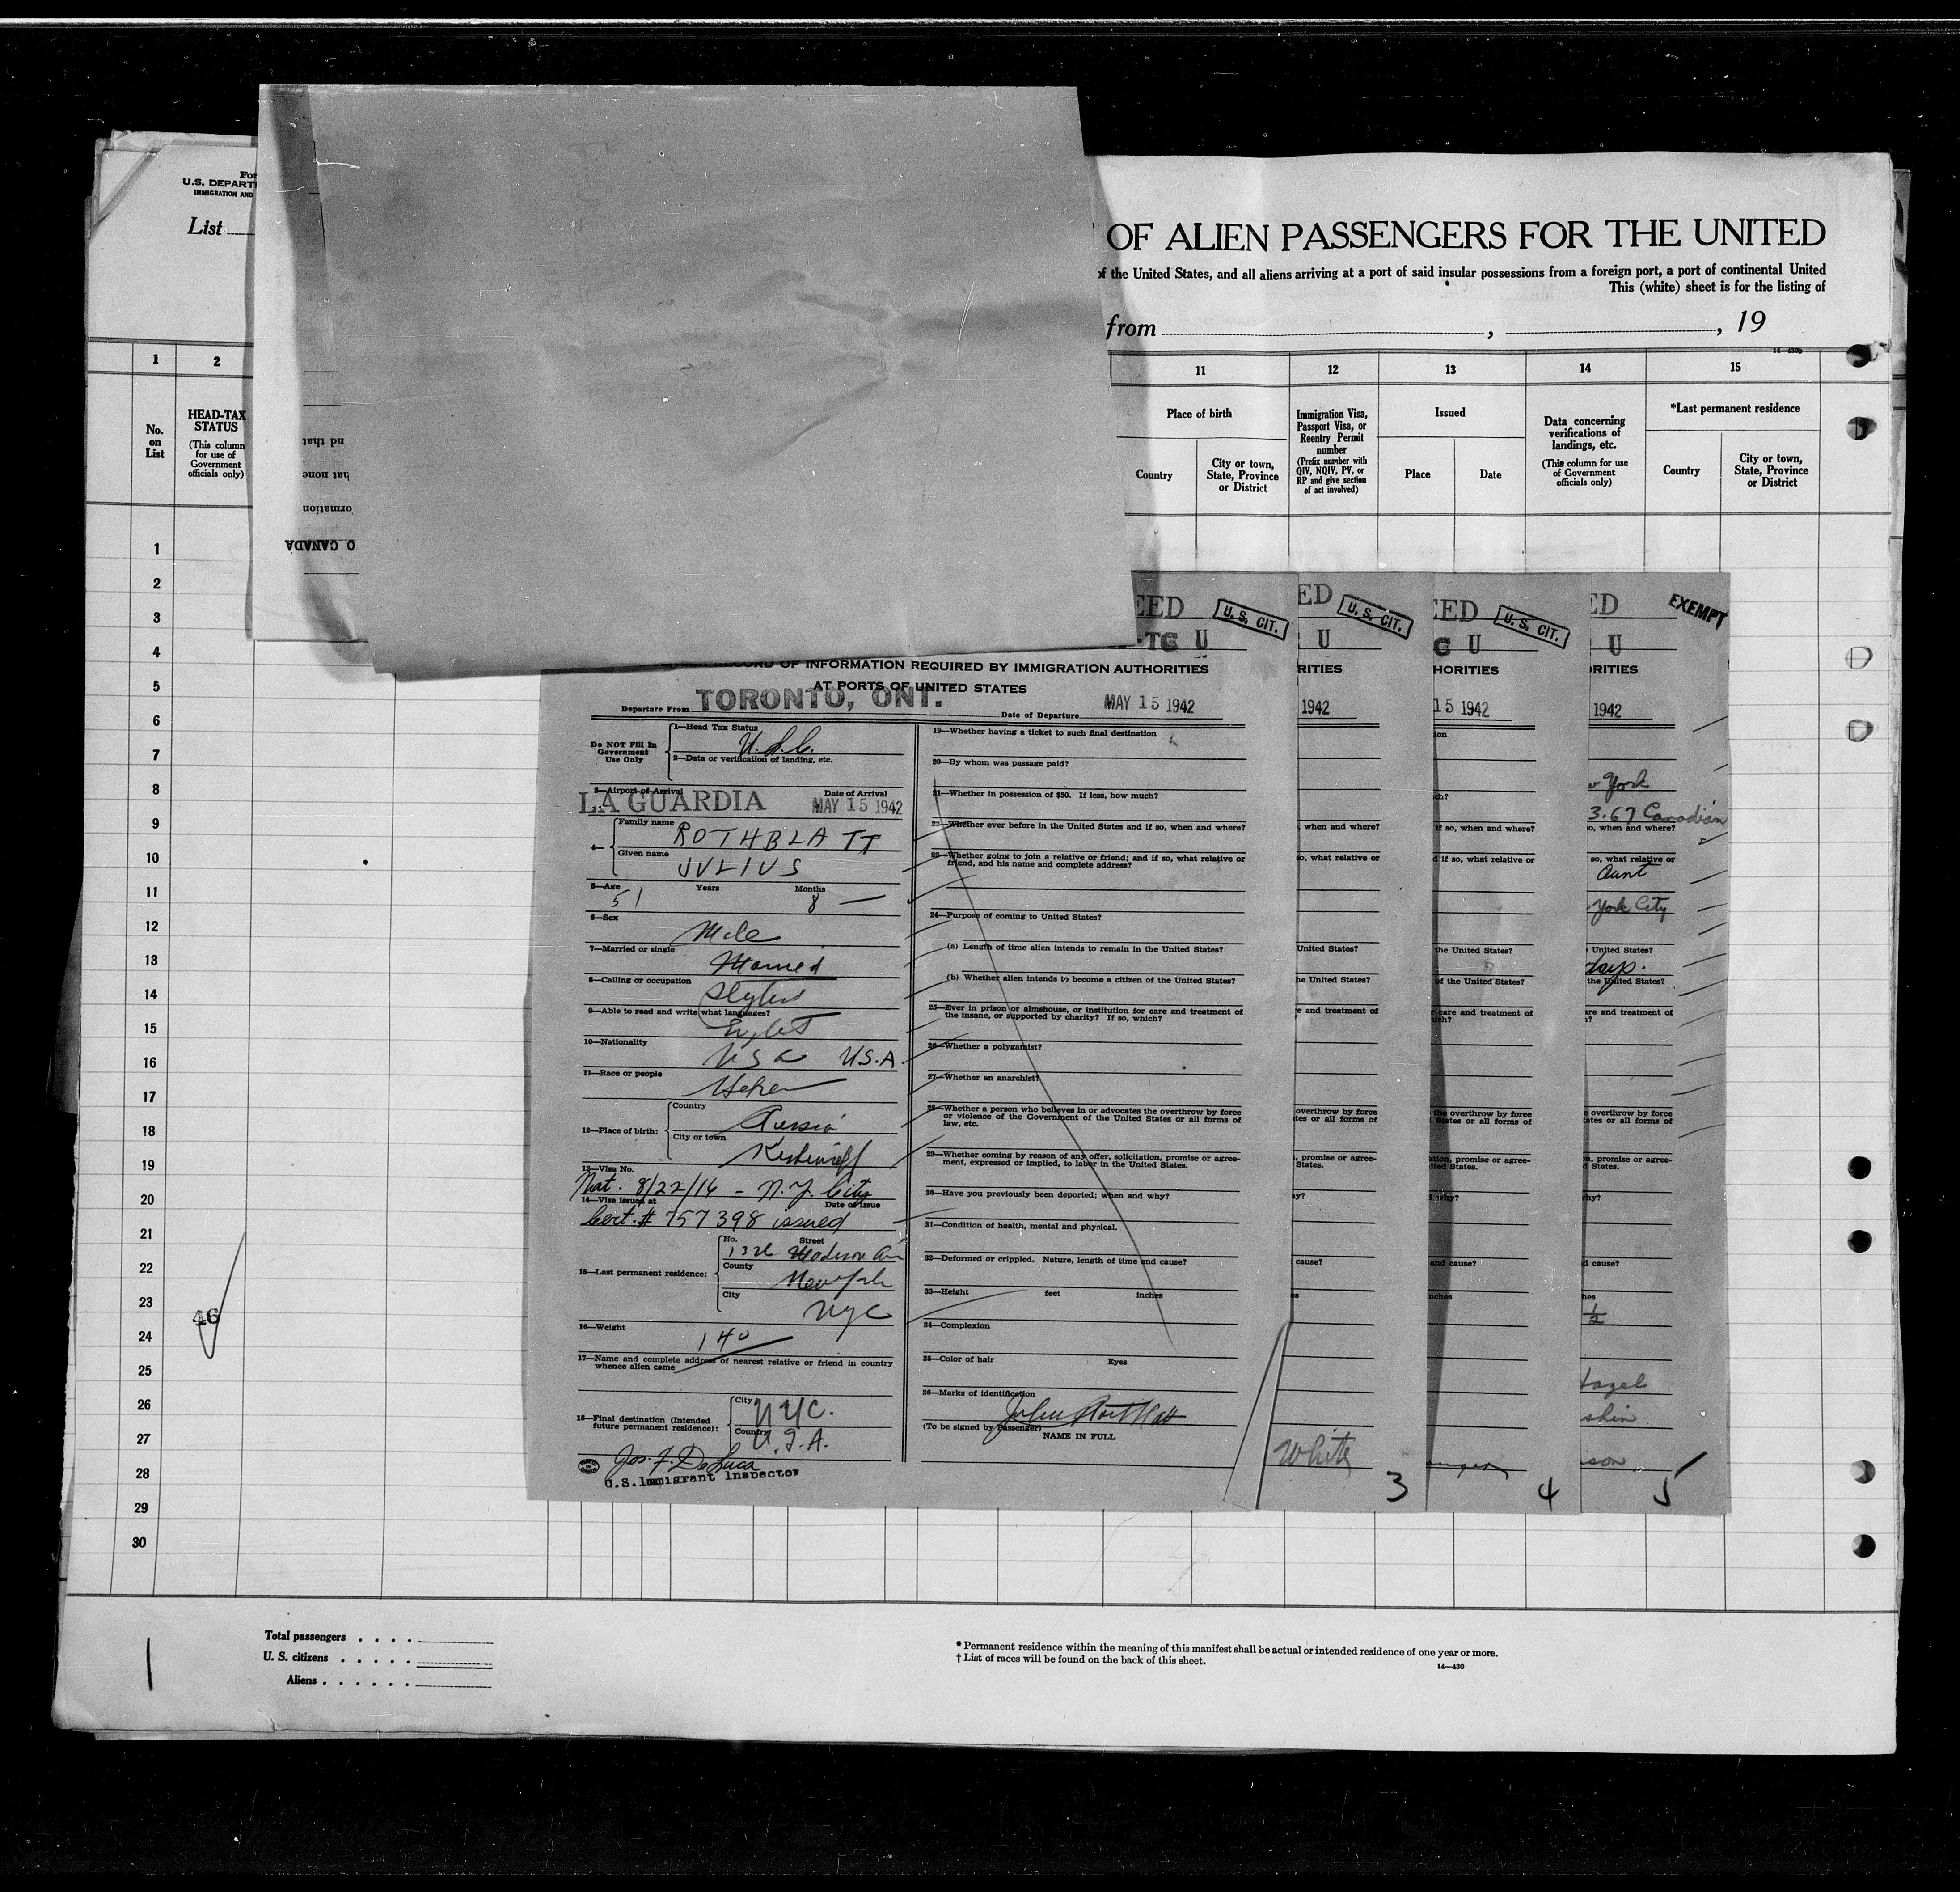 For
U.S. DEPART
IMMIGRATION AND
List
OF ALIEN PASSENGERS FOR THE UNITED
of the United States, and all aliens arriving at a port of said insular possessions from a foreign port, a port of continental United
This (white) sheet is for the listing of
from , , 19
1 2 11 12 13 14 15
No. on List
HEAD-TAX STATUS
(This column for use of Government officials only)
Place of birth
Country
City or town, State, Province or District
Immigration Visa, Passport Visa, or Reentry Permit number
(Prefix number with QIV, NQIV, PV, or RP and give section of act involved)
Issued
Place
Date
Data concerning verifications of landings, etc.
(This column for use of Government officials only)
*Last permanent residence
Country
City or town, State, Province or District
nd that
hat none
ormation
O CANADA
1
2
3
4
5
6
7
8
9
10
11
12
13
14
15
16
17
18
19
20
21
22
23
24
25
26
27
28
29
30
46
EED U.S. CIT.
TG U
RECORD OF INFORMATION REQUIRED BY IMMIGRATION AUTHORITIES
AT PORTS OF UNITED STATES
Departure From TORONTO, ONT. Date of Departure MAY 15 1942
Do NOT Fill In Government Use Only
1—Head Tax Status U.S.C.
2—Data or verification of landing, etc.
3—Airport of Arrival Date of Arrival
LA GUARDIA MAY 15 1942
4— Family name ROTHBLATT
Given name JULIUS
5—Age 51 Years Months 8 —
6—Sex Male
7—Married or single Married
8—Calling or occupation
9—Able to read and write what languages?
10—Nationality USC U.S.A.
11—Race or people Hebrew
12—Place of birth: Country Russia
City or town Kishineff
13—Visa No.
Nat. 8/22/16 - N.Y. City
14—Visa issued at Date of Issue
Cert. # 757398 issued
15—Last permanent residence: No. Street
1326 Madison Av
County New York
City NYC
16—Weight 140
17—Name and complete address of nearest relative or friend in country whence alien came
18—Final destination (Intended future permanent residence): City NYC.
Country U.S.A.
Jos. F. DeLuca
U.S. Immigrant Inspector
19—Whether having a ticket to such final destination
20—By whom was passage paid?
21—Whether in possession of $50. If less, how much?
22—Whether ever before in the United States and if so, when and where?
23—Whether going to join a relative or friend; and if so, what relative or friend, and his name and complete address?
24—Purpose of coming to United States?
(a) Length of time alien intends to remain in the United States?
(b) Whether alien intends to become a citizen of the United States?
25—Ever in prison or almshouse, or institution for care and treatment of the insane, or supported by charity? If so, which?
26—Whether a polygamist?
27—Whether an anarchist?
28—Whether a person who believes in or advocates the overthrow by force or violence of the Government of the United States or all forms of law, etc.
29—Whether coming by reason of any offer, solicitation, promise or agreement, expressed or implied, to labor in the United States.
30—Have you previously been deported; when and why?
31—Condition of health, mental and physical.
32—Deformed or crippled. Nature, length of time and cause?
33—Height feet inches
34—Complexion
35—Color of hair Eyes
36—Marks of identification
Julius Rothblatt
(To be signed by Passenger)
NAME IN FULL
ED U.S. CIT.
U
RITIES
1942
, when and where?
so, what relative or
United States?
he United States?
e and treatment of
overthrow by force
tes or all forms of
, promise or agree-
States.
hy?
cause?
es
White
3
EED U.S. CIT.
G U
HORITIES
15 1942
ion
ch?
if so, when and where?
d if so, what relative or
the United States?
of the United States?
r care and treatment of
ich?
the overthrow by force
States or all forms of
ation, promise or agree-
ited States.
d why?
and cause?
nches
4
ED EXEMPT
U
ORITIES
1942
w York
3.67 Canadian
so, when and where?
so, what relative or
Aunt
York City
United States?
days.
the United States?
are and treatment of
h?
e overthrow by force
ates or all forms of
n, promise or agree-
d States.
why?
d cause?
hes
1/2
Hazel
shin
ison
5
Total passengers . . . .
U. S. citizens . . . . .
Aliens . . . . . .
* Permanent residence within the meaning of this manifest shall be actual or intended residence of one year or more.
† List of races will be found on the back of this sheet.
14—430